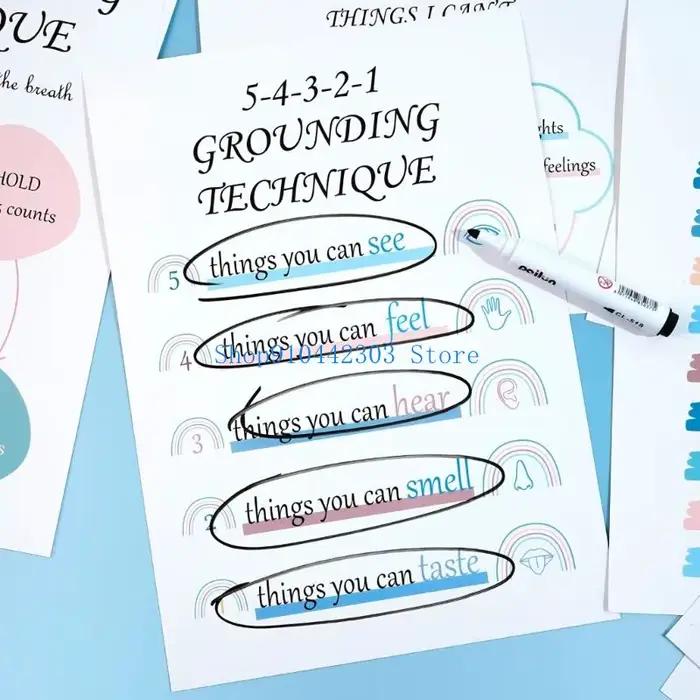 QUE
the breath
HOLD
5 counts
THINGS I CAN'T
5-4-3-2-1
GROUNDING
TECHNIQUE
5 things you can see
4 things you can feel
Shop910442303 Store
3 things you can hear
2 things you can smell
things you can taste
hts
feelings
CL-518